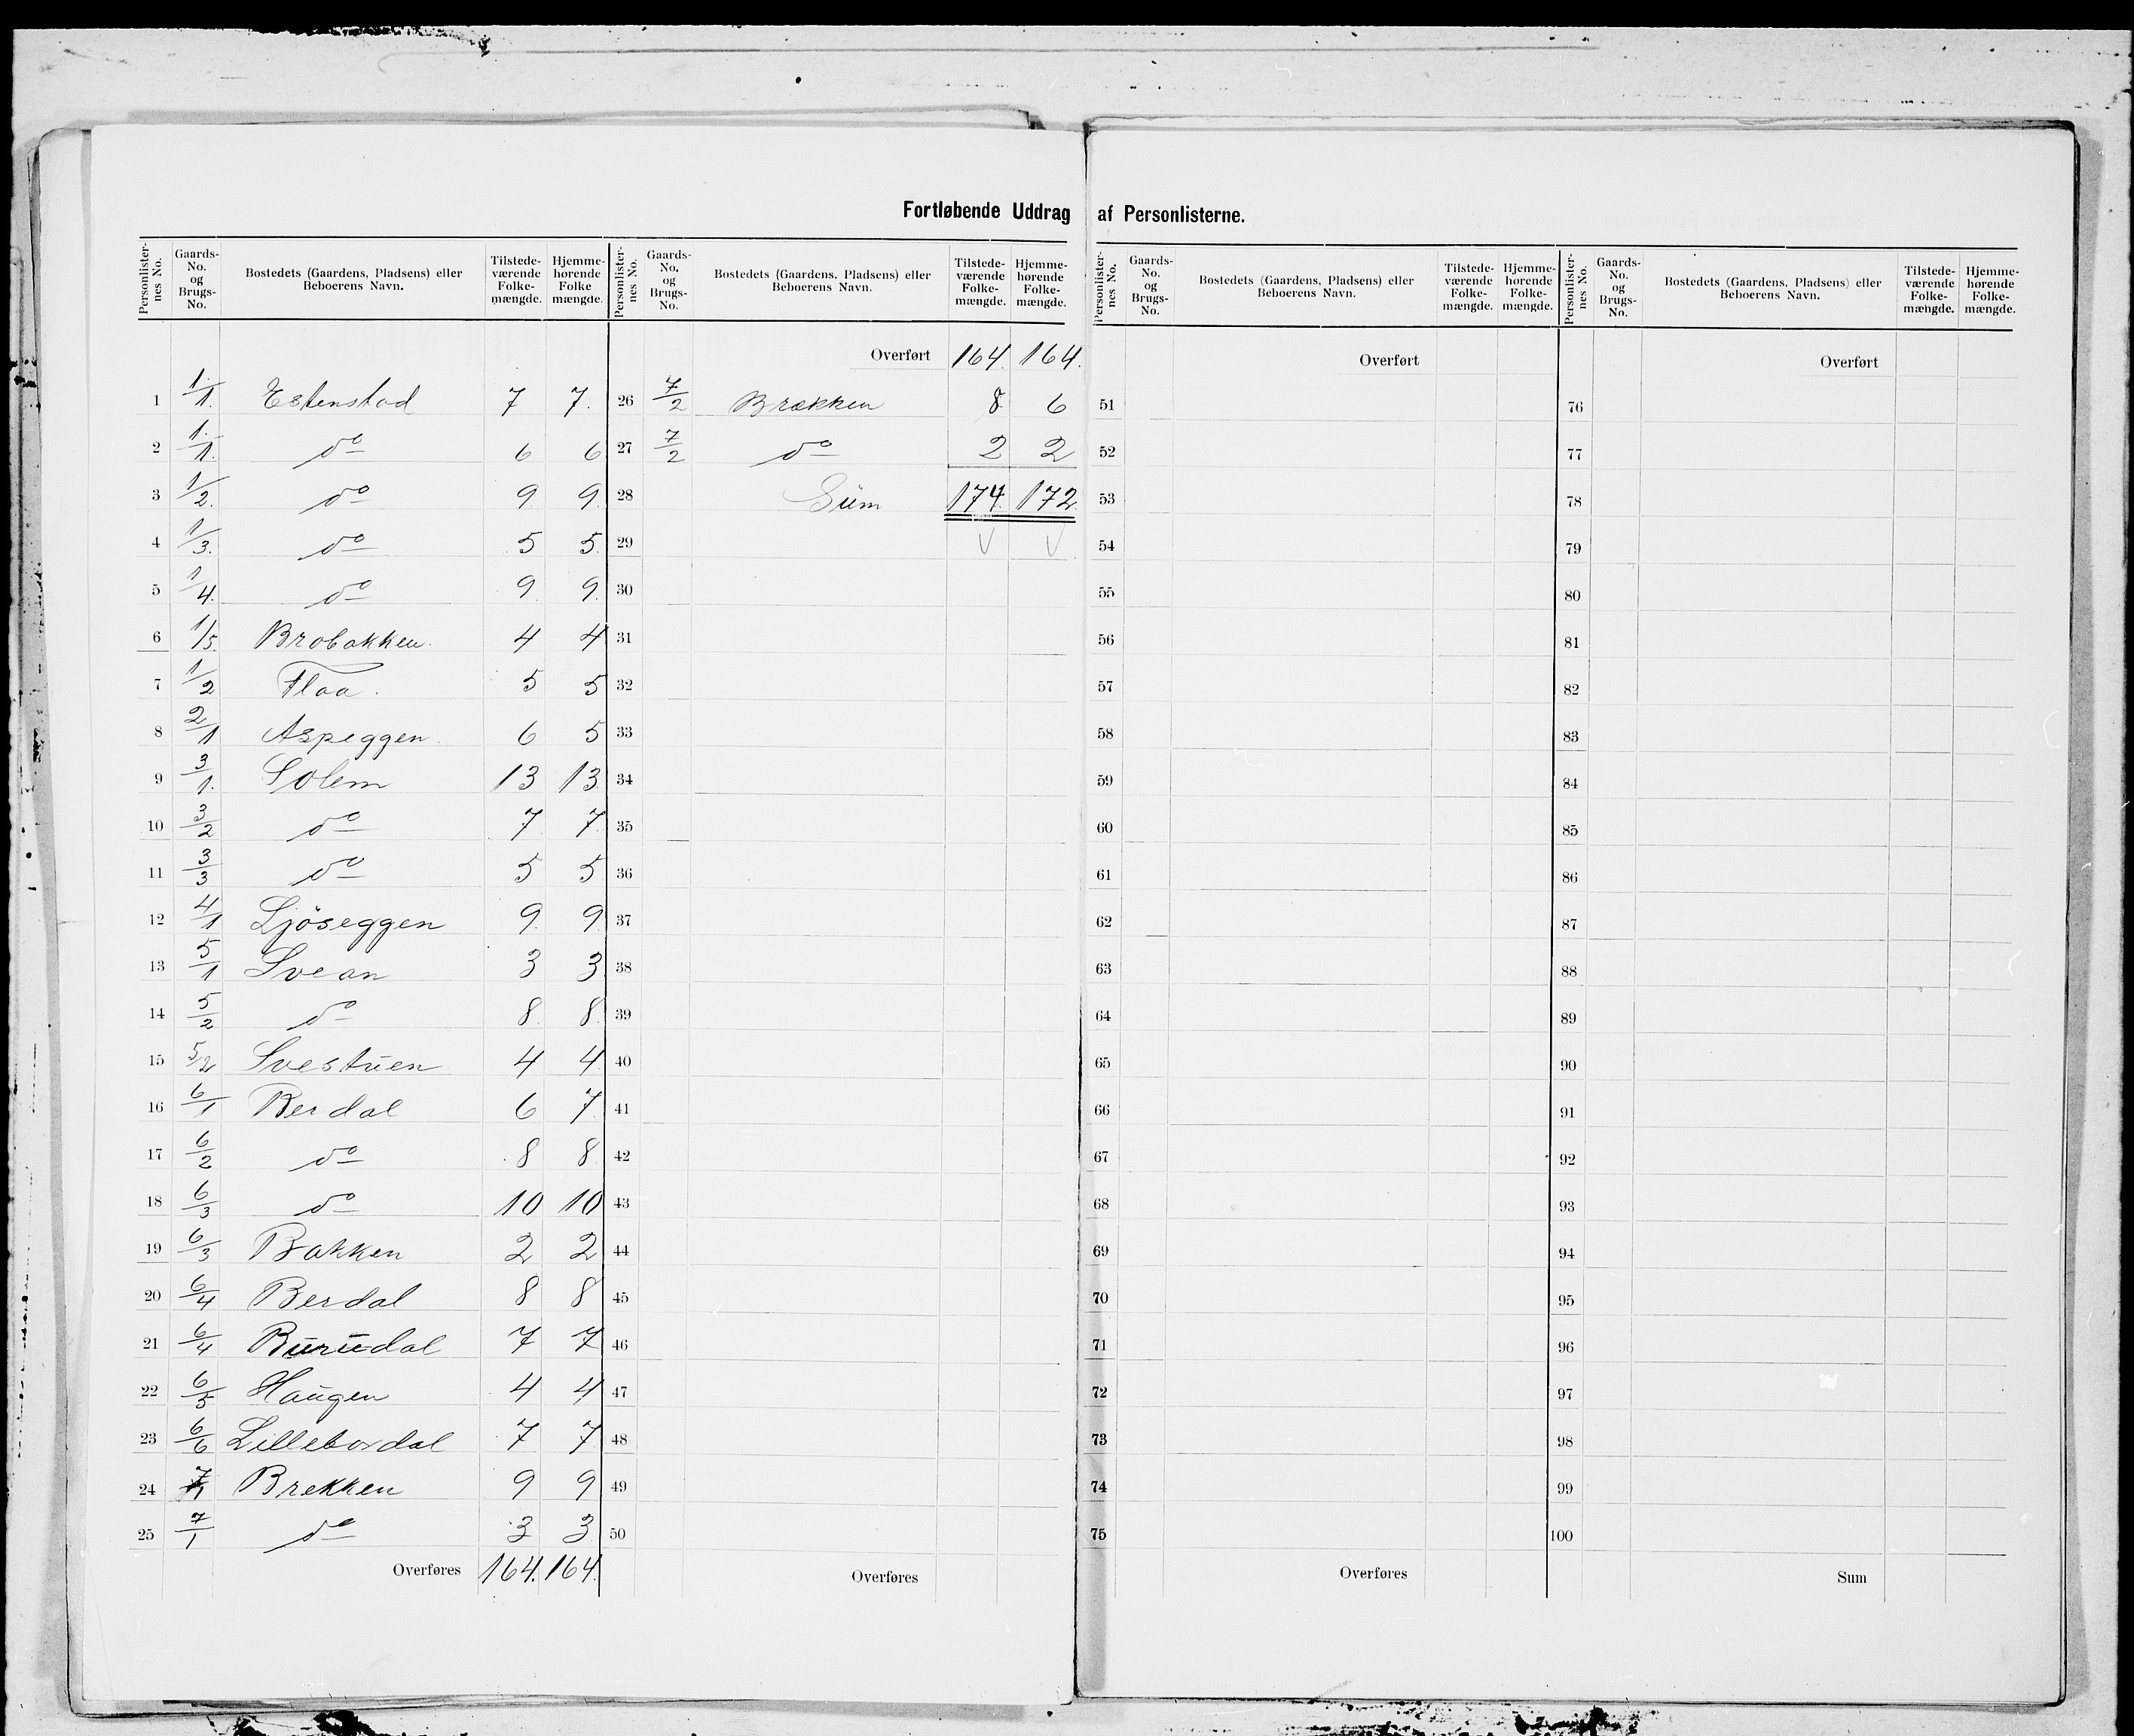 Fortløbende Uddrag af Personlisterne.
Personlisternes No. | Gaards-No. og Brugs-No. | Bostedets (Gaardens, Pladsens) eller Beboerens Navn. | Tilstedeværende Folkemængde. | Hjemmehørende Folke mængde.
1 | 1/1. | Estenstad | 7 | 7.
2 | 1/1. | do | 6 | 6
3 | 1/2. | do | 9. | 9.
4 | 1/3. | do | 5 | 5.
5 | 1/4. | do | 9. | 9.
6 | 1/5. | Brobakken. | 4 | 4
7 | 1/2 | Flaa. | 5 | 5
8 | 2/1 | Aspeggen. | 6 | 5
9 | 3/1. | Solem | 13 | 13.
10 | 3/2 | do | 7. | 7.
11 | 3/3 | do | 5 | 5
12 | 4/1 | Ljöseggen | 9. | 9.
13 | 5/1 | Svean | 3 | 3.
14 | 5/2 | do | 8. | 8.
15 | 5/2 | Svestuen | 4 | 4.
16 | 6/1 | Berdal | 6 | 7.
17 | 6/2 | do | 8 | 8.
18 | 6/3 | do | 10 | 10
19 | 6/3 | Bakken | 2 | 2
20 | 6/4 | Berdal | 8 | 8
21 | 6/4 | Burudal | 7 | 7
22 | 6/5 | Haugen | 4 | 4
23 | 6/6 | Lillebordal | 7 | 7
24 | 7/1 | Brekken | 9 | 9
25 | 7/1 | do | 3 | 3
Overføres | 164. | 164.
Personlisternes No. | Gaards-No. og Brugs-No. | Bostedets (Gaardens, Pladsens) eller Beboerens Navn. | Tilstedeværende Folkemængde. | Hjemmehørende Folkemængde.
Overført | 164. | 164.
26 | 7/2 | Brækken | 8 | 6
27 | 7/2 | do | 2 | 2
28 | Sum | 174. | 172.
29 | V | V
30
31
32
33
34
35
36
37
38
39
40
41
42
43
44
45
46
47
48
49
50
Overføres
Personlisternes No. | Gaards-No. og Brugs-No. | Bostedets (Gaardens, Pladsens) eller Beboerens Navn. | Tilstedeværende Folkemængde. | Hjemmehørende Folkemængde.
Overført
51
52
53
54
55
56
57
58
59
60
61
62
63
64
65
66
67
68
69
70
71
72
73
74
75
Overføres
Personlisternes No. | Gaards-No. og Brugs-No. | Bostedets (Gaardens, Pladsens) eller Beboerens Navn. | Tilstedeværende Folkemængde. | Hjemmehørende Folkemængde.
Overført
76
77
78
79
80
81
82
83
84
85
86
87
88
89
90
91
92
93
94
95
96
97
98
99
100
Sum